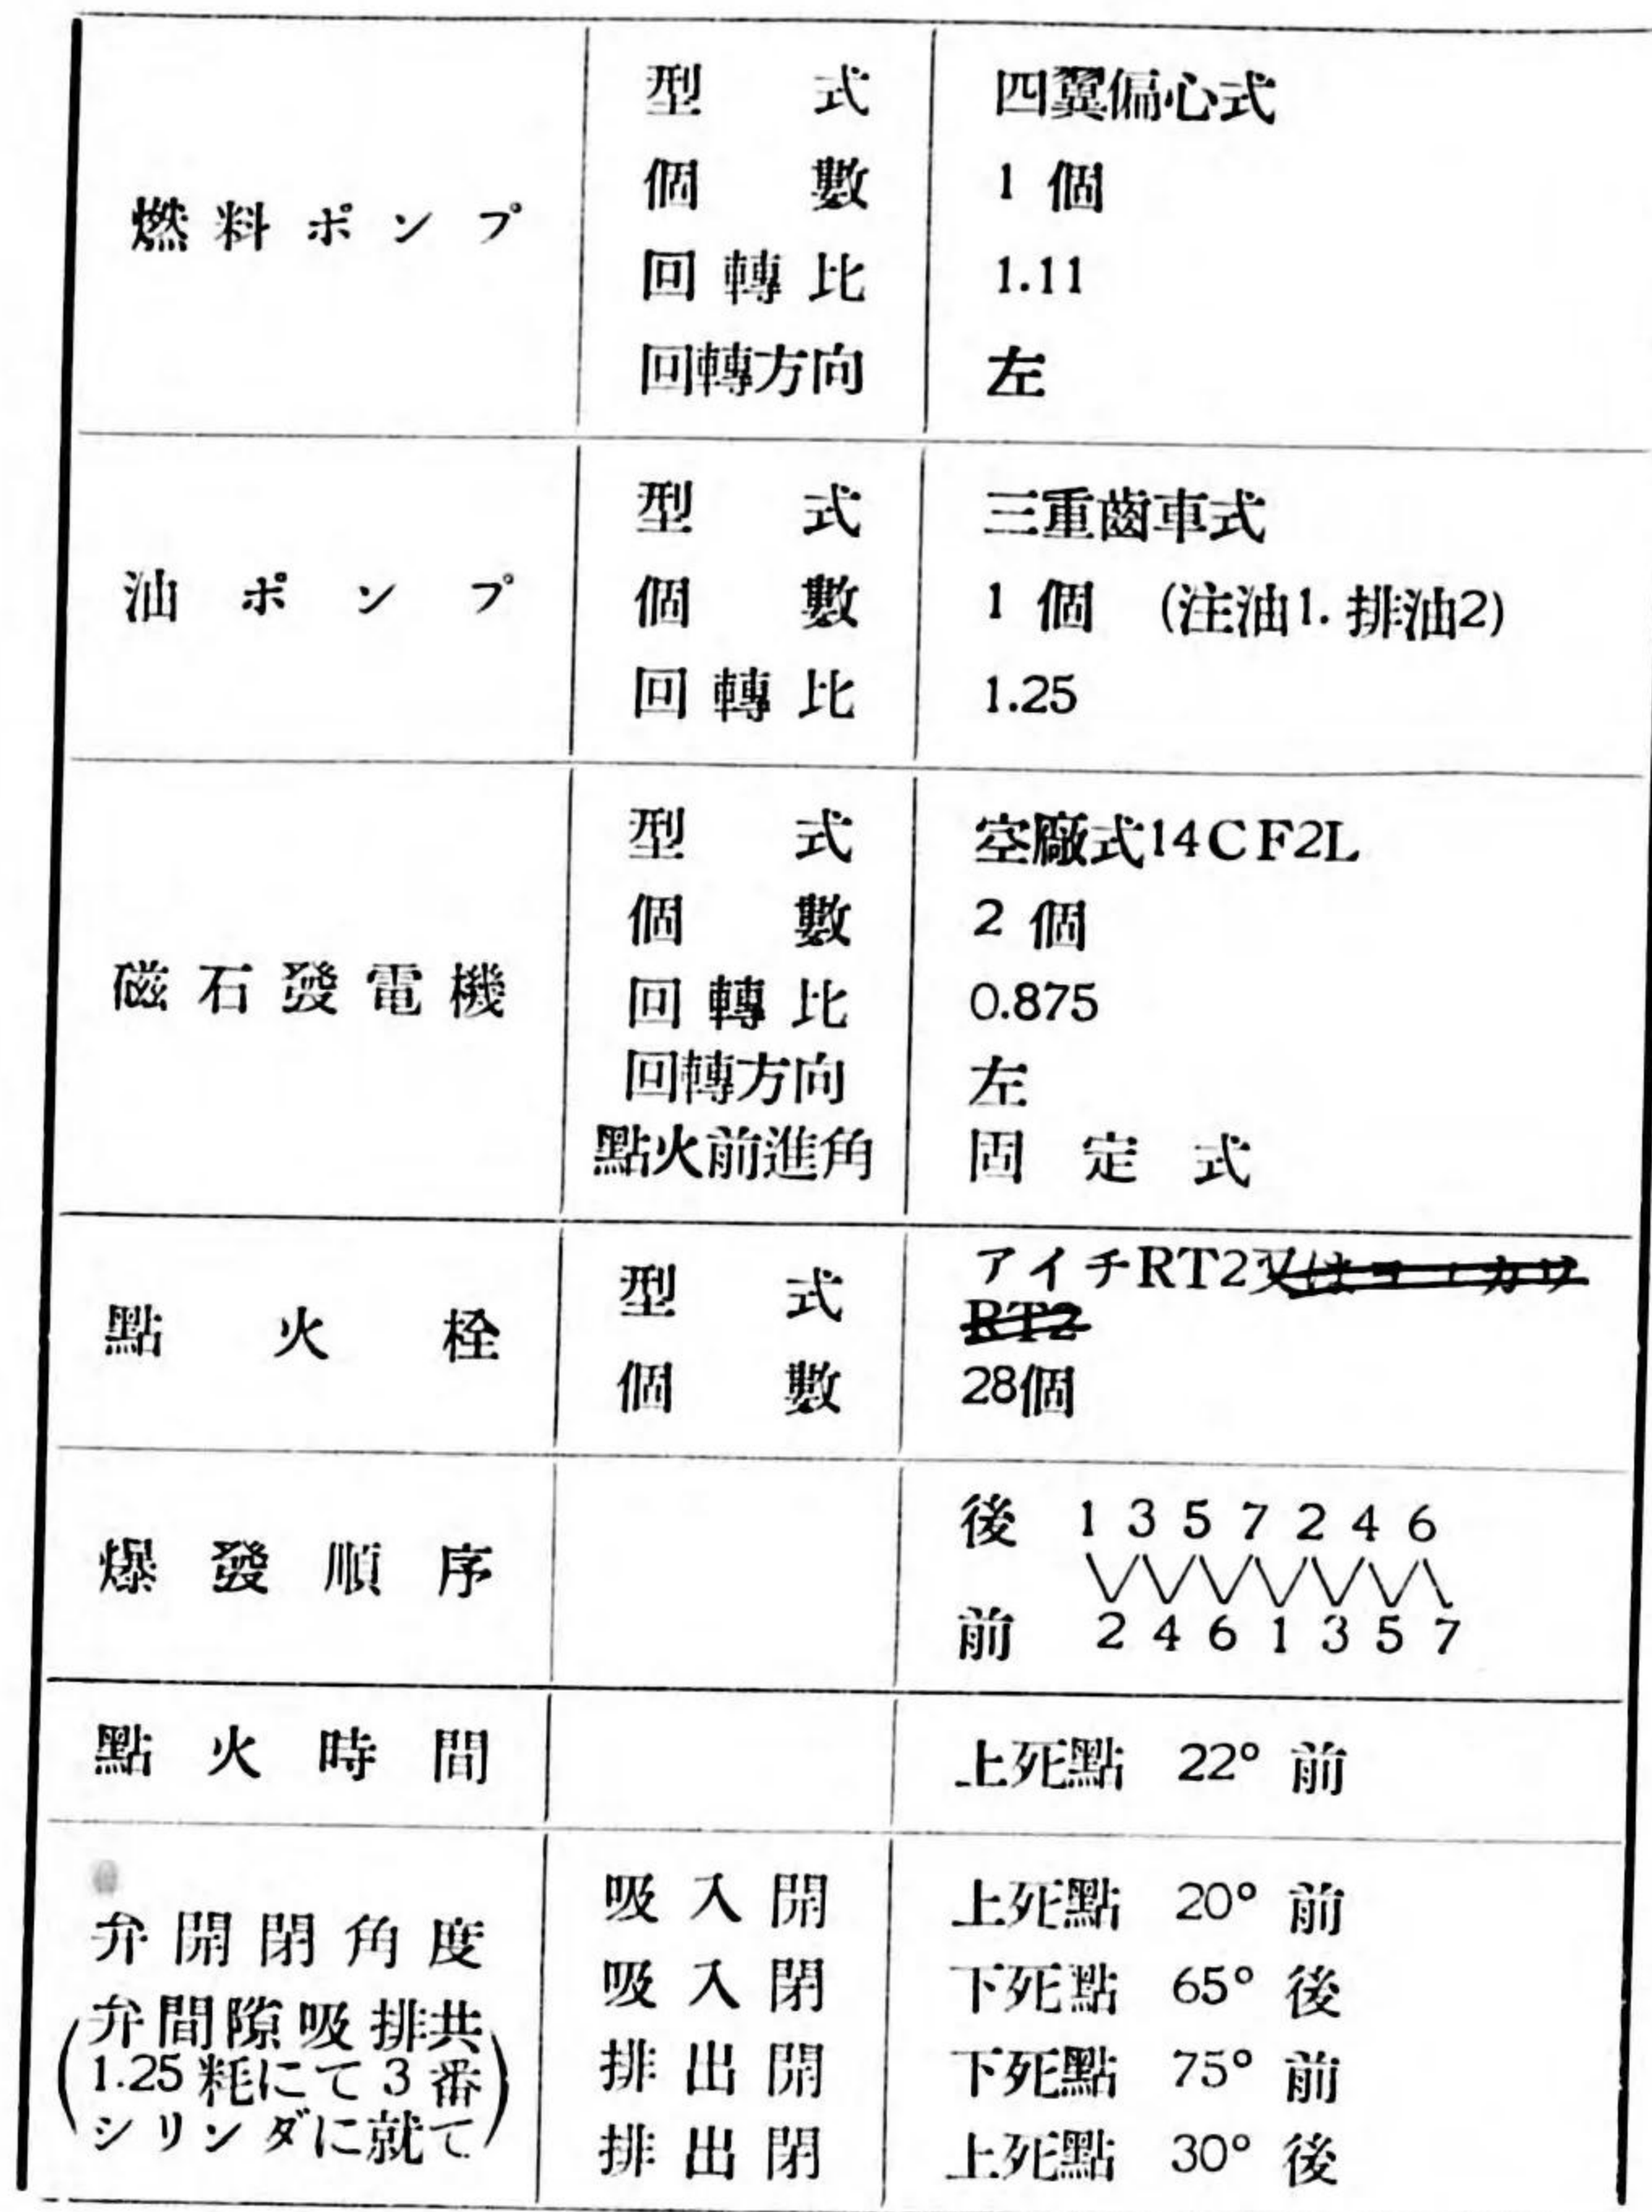 燃料ポンプ
型式 四翼偏心式
個數 1個
回轉比 1.11
回轉方向 左
油ポンプ
型式 三重齒車式
個數 1個 (注油1. 排油2)
回轉比 1.25
磁石發電機
型式 空廠式14CF2L
個數 2個
回轉比 0.875
回轉方向 左
點火前進角 固定式
點火栓
型式 アイチRT2又は
RT2
個數 28個
爆發順序
後 1 3 5 7 2 4 6
前 2 4 6 1 3 5 7
點火時間
上死點 22° 前
弁開閉角度
(弁間隙吸排共
1.25粍にて3番
シリンダに就て)
吸入開 上死點 20° 前
吸入閉 下死點 65° 後
排出開 下死點 75° 前
排出閉 上死點 30° 後